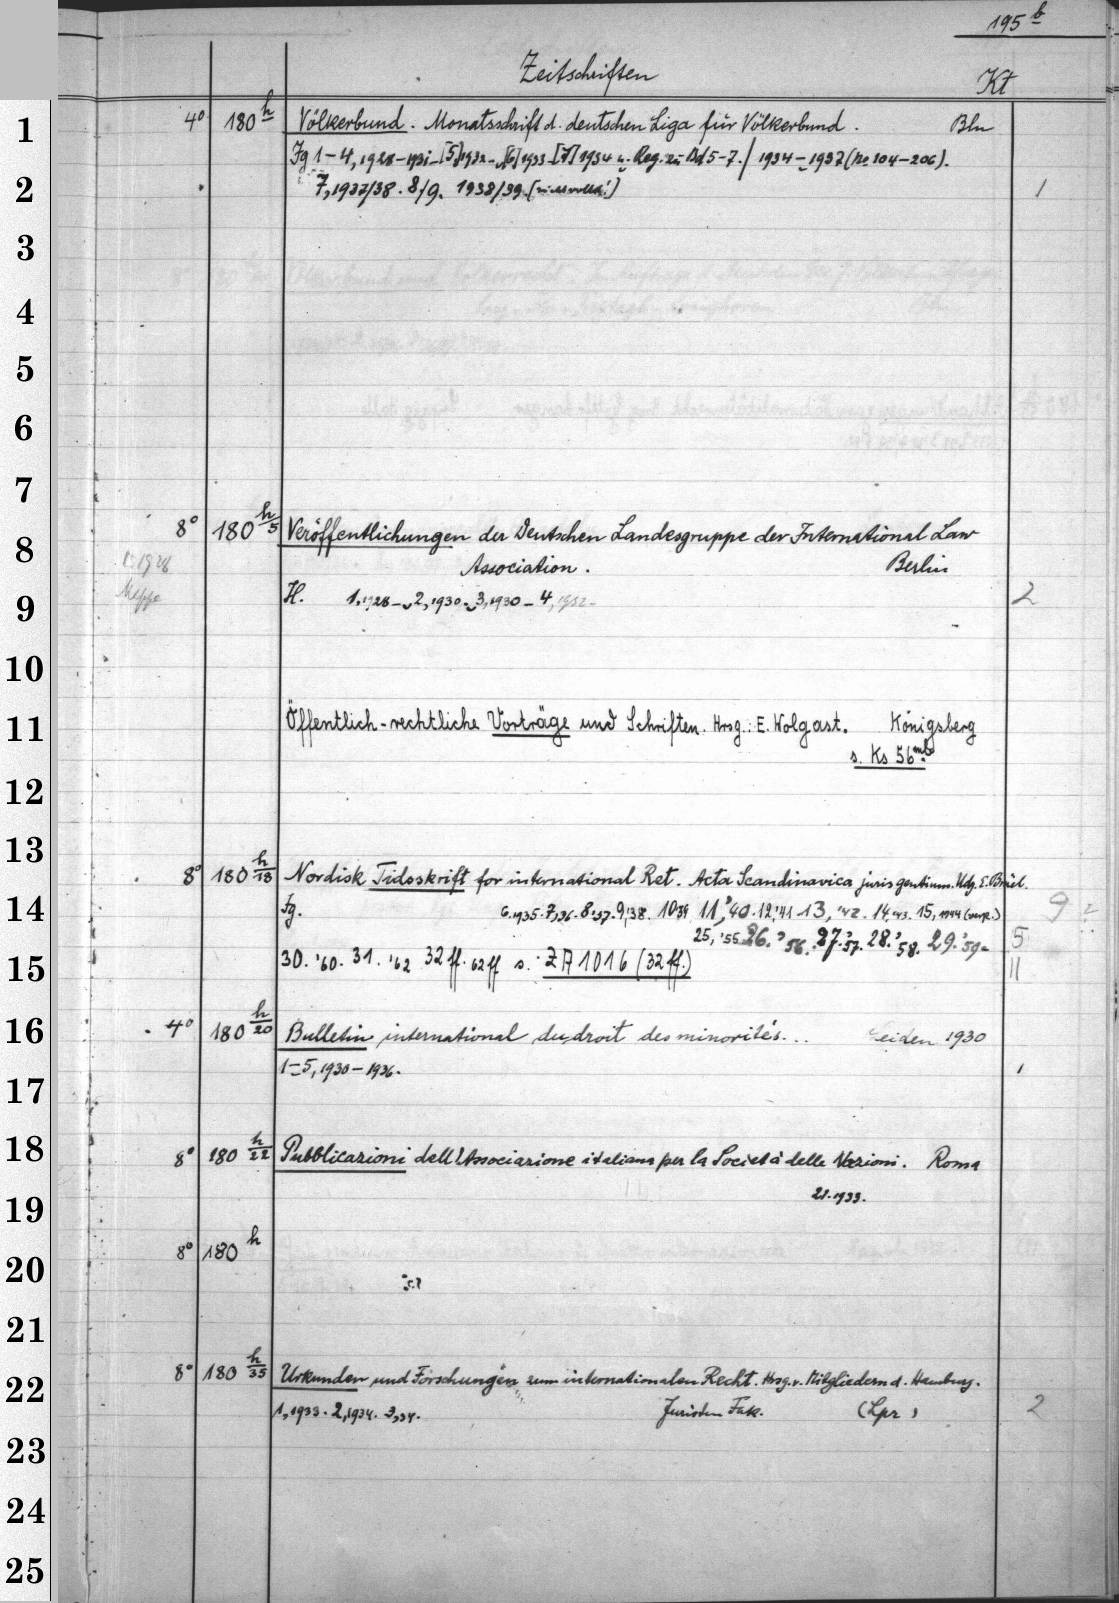 195 b
Zeitschriften Kt
1 4° 180 h Völkerbund. Monatsschrift d. deutschen Liga für Völkerbund. Bln
Jg 1–4, 1928–1931–[5]1932–[6]1933–[7]1934 u. Reg. zu Bd 5–7. / 1934–1937 (No 104–206).
2 7, 1937/38. 8/9. 1938/39. 1
3
4
5
6
7
8° 180 h/5 Veröffentlichungen der Deutschen Landesgruppe der International Law
8 1: 1928 Association. Berlin
Mappe
9 H. 1, 1928–2, 1930–3, 1930–4, 1932– 2
10
11 Öffentlich-rechtliche Vorträge und Schriften. Hrsg.: E. Wolgast. Königsberg
s. Ks 56 mb
12
13
8° 180 h/18 Nordisk Tidsskrift for international Ret. Acta Scandinavica juris gentium. Udg. E. Brüel.
14 Jg. 6.1935. 7,36. 8.'37. 9,'38. 10,39 11,'40. 12,'41 13,'42. 14,'43. 15, 1944 9
25,'55 26.'56. 27.'57. 28.'58. 29.'59– 5
15 30.'60. 31.'62 32 ff. 62 ff s. ZA 1016 (32 ff.) 11
16 4° 180 h/20 Bulletin international du droit des minorités... Leiden 1930
1–5, 1930–1936. 1
17
18 8° 180 h/22 Pubblicazioni dell'Associazione italiana per la Società delle Nazioni. Roma
19 21.1933.
8° 180 h
20
21
8° 180 h/35 Urkunden und Forschungen zum internationalen Recht. Hrsg. v. Mitgliedern d. Hamburg.
22 1, 1933. 2, 1934. 3, 34. Juristen Fak. (Lpz) 2
23
24
25